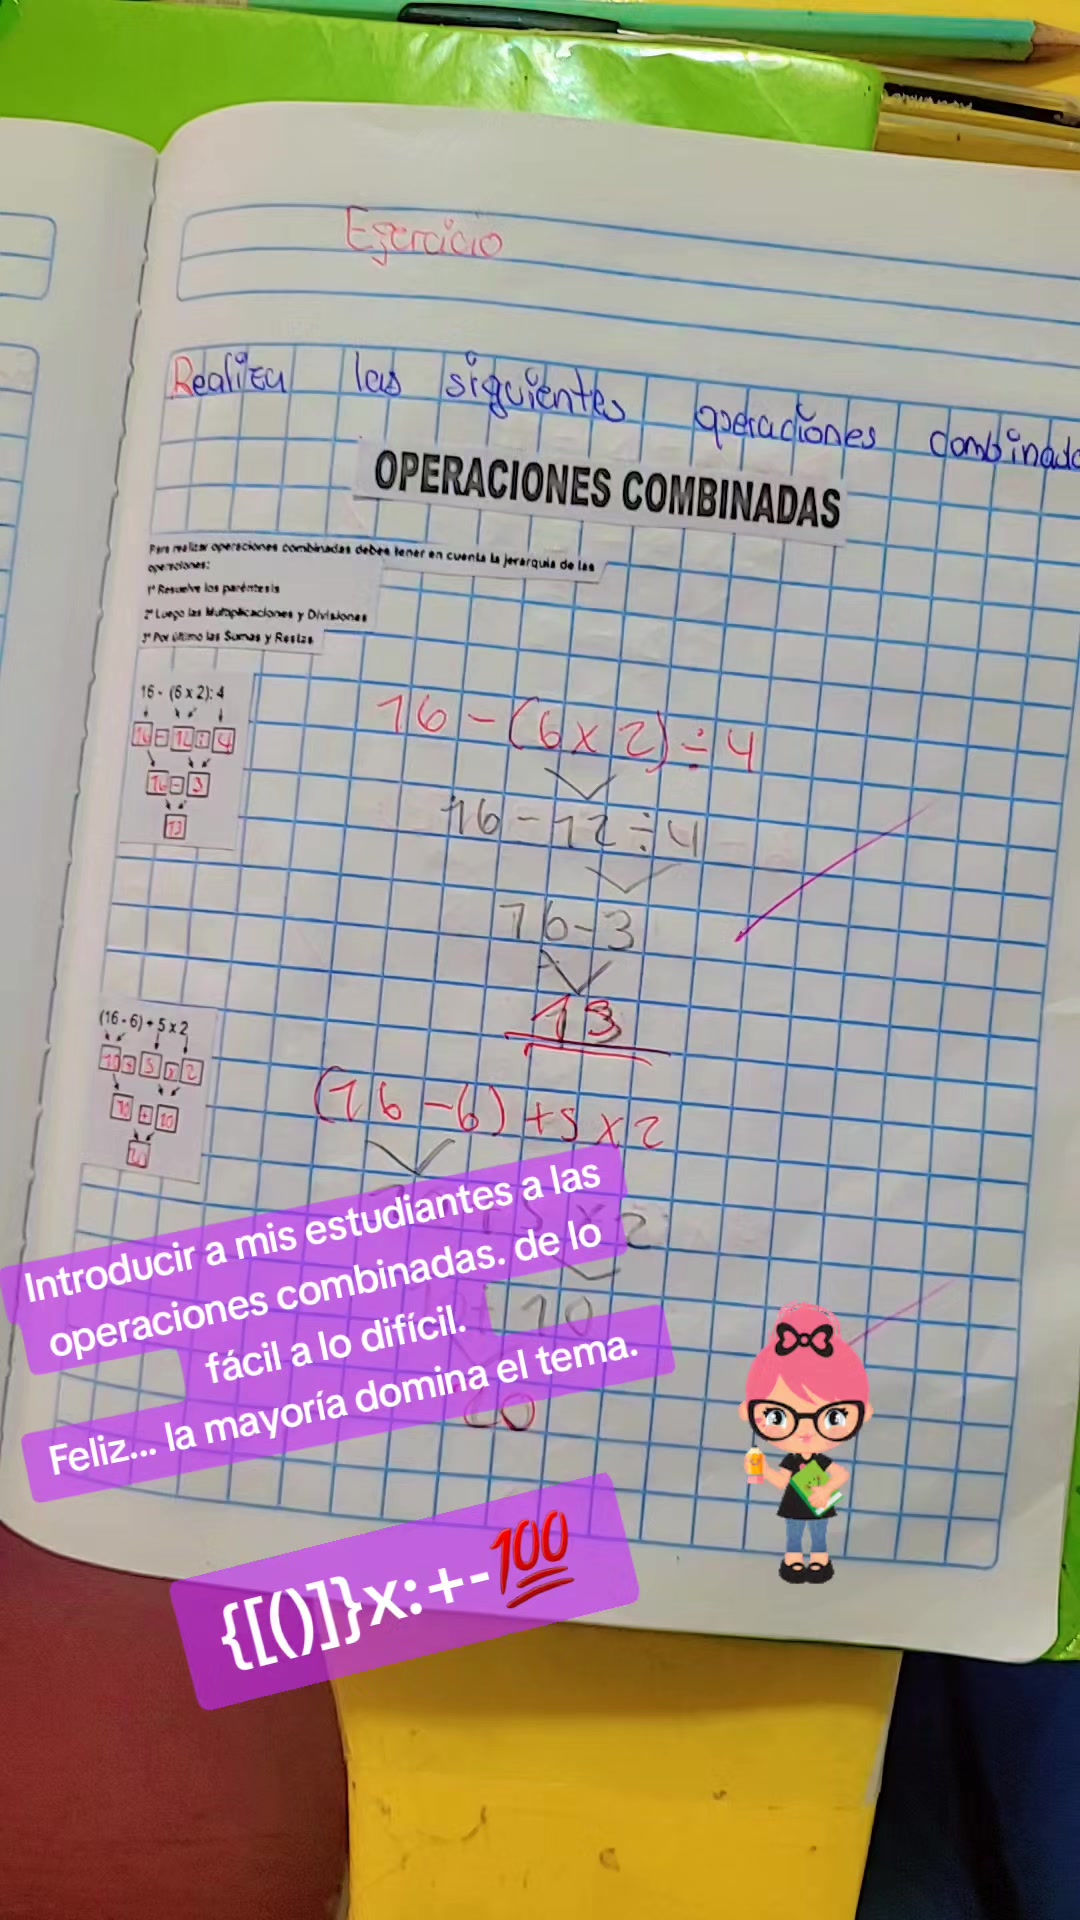 Ejercicio
Realiza las siguientes operaciones combinada
OPERACIONES COMBINADAS
Para realizar operaciones combinadas debes tener en cuenta la jerarquía de las
operaciones:
1º Resuelve los paréntesis
2º Luego las Multiplicaciones y Divisiones
3º Por último las Sumas y Restas
16 - (6 x 2): 4
16 - 12 : 4
16 - 3
13
16 - (6 x 2) ÷ 4
16 - 12 ÷ 4
16 - 3
13
(16 - 6) + 5 x 2
10 + 5 x 2
10 + 10
20
(16 - 6) + 5 x 2
5 x 2
+ 10
20
Introducir a mis estudiantes a las
operaciones combinadas. de lo
fácil a lo difícil.
Feliz... la mayoría domina el tema.
{[()]}x:+-💯